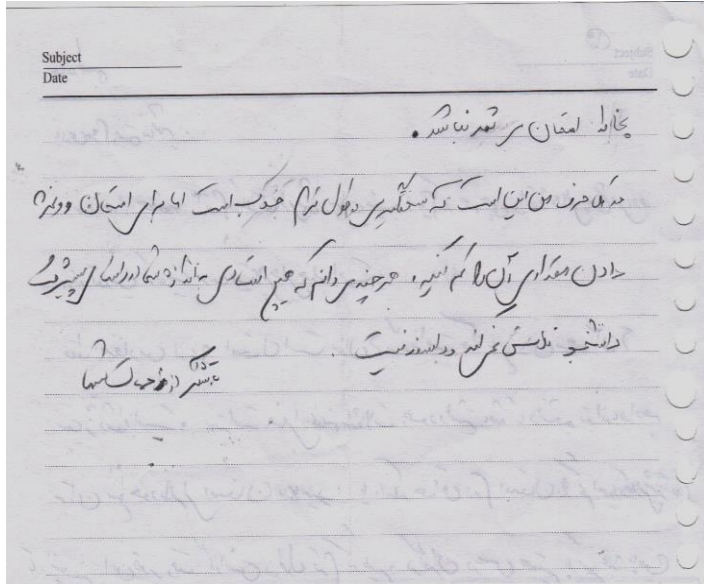 Subject
Date
بخاطر امتحان بی ثمر نباشد.
در کل حرف من این است که سختگیری در طول ترم خوب است اما برای امتحان و نمره
دادن مقداری آن را کم کنید. هر چند می دانم که هیچ استادی به اندازه شما در راستای پیشرفت
دانشجو تلاش نمی کند و دلسوز نیست.
با تشکر از زحمات شما